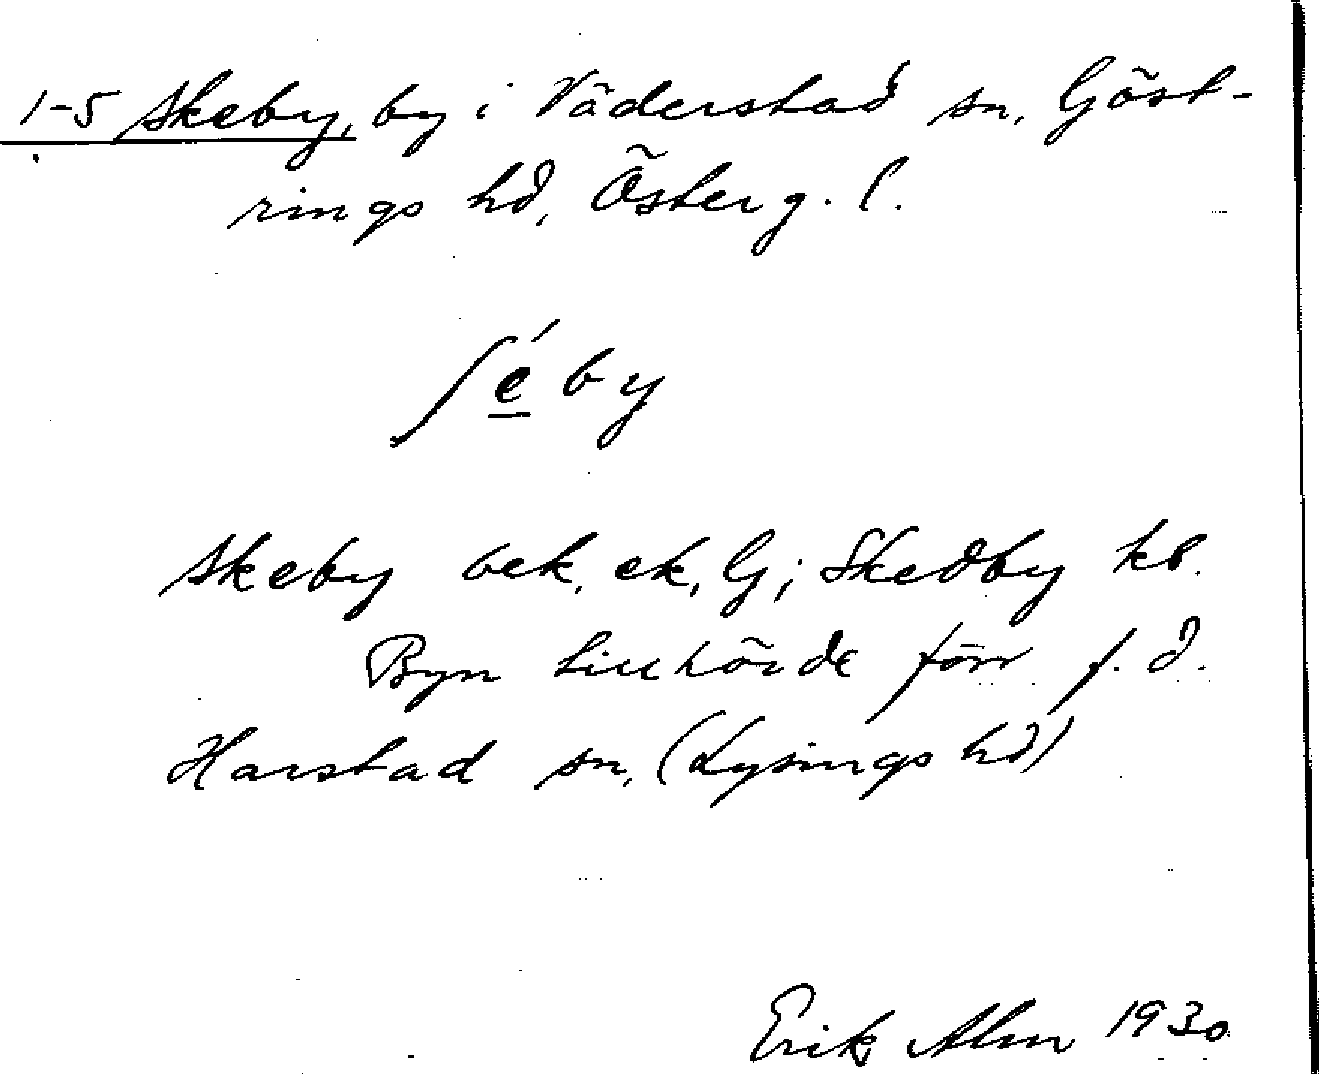 1-5 Skeby, by i Väderstad sn, Göst-
rings hd, Österg. l.
ʃé̲by
Skeby bek. ek, G; Skedby kb.
Byn tillhörde förr f. d.
Harstad sn, (Lysings hd)
Erik Alm 1930